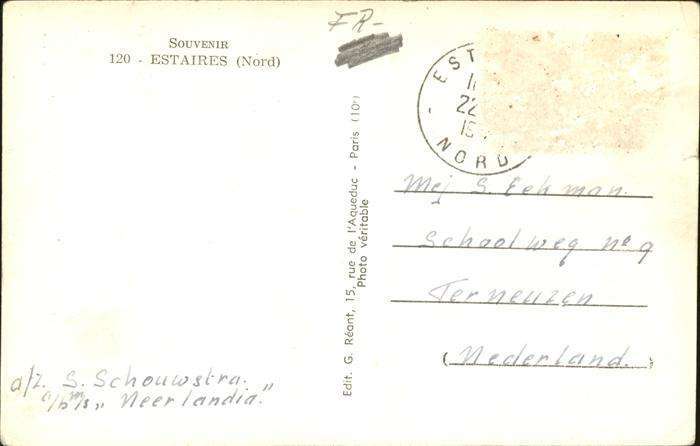 FR-
SOUVENIR
120 - ESTAIRES (Nord)
EST
22
15
NORD
Edit. G. Réant, 15, rue de l'Aqueduc - Paris (10e)
Photo véritable
Mej S. Eehman.
Schoolweg no 9
Terneuzen
(Nederland.)
a/z. S. Schouwstra.
a/b m/s „Neerlandia."